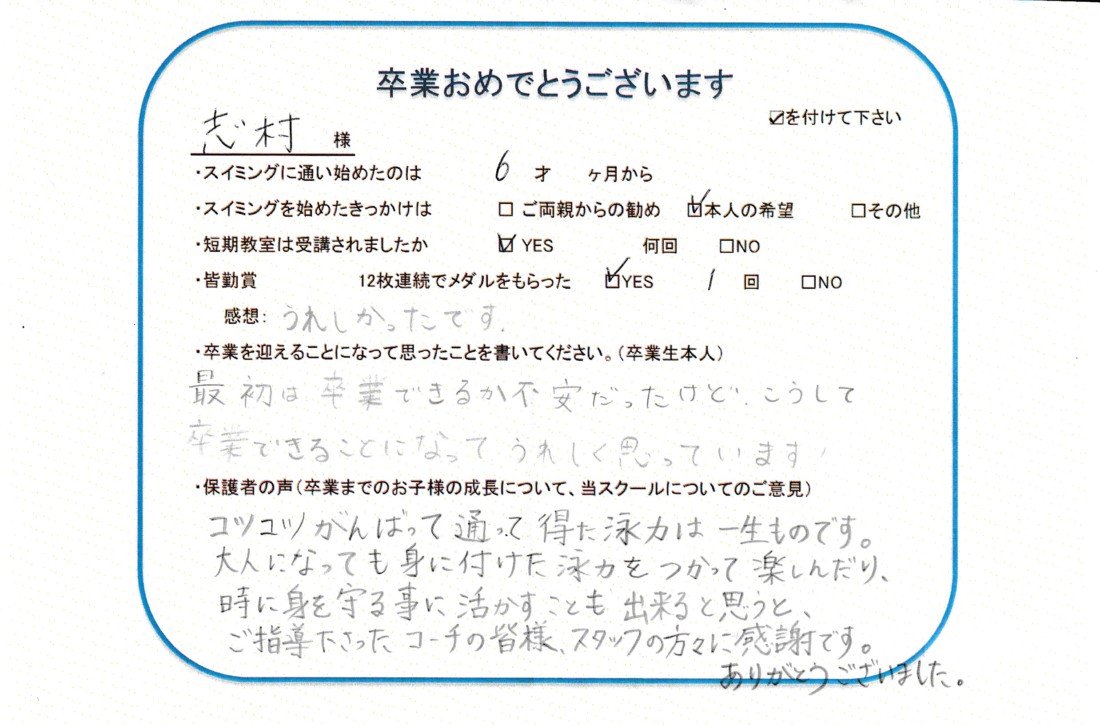 卒業おめでとうございます
☑を付けて下さい
志村 様
・スイミングに通い始めたのは 6 才 ヶ月から
・スイミングを始めたきっかけは □ ご両親からの勧め ☑本人の希望 □その他
・短期教室は受講されましたか ☑ YES 何回 □NO
・皆勤賞 12枚連続でメダルをもらった ☑YES 1 回 □NO
感想: うれしかったです.
・卒業を迎えることになって思ったことを書いてください。(卒業生本人)
最初は卒業できるか不安だったけど、こうして
卒業できることになってうれしく思っています!
・保護者の声(卒業までのお子様の成長について、当スクールについてのご意見)
コツコツがんばって通って得た泳力は一生ものです。
大人になっても身に付けた泳力をつかって楽しんだり、
時に身を守る事に活かすことも出来ると思うと、
ご指導下さったコーチの皆様、スタッフの方々に感謝です。
ありがとうございました。